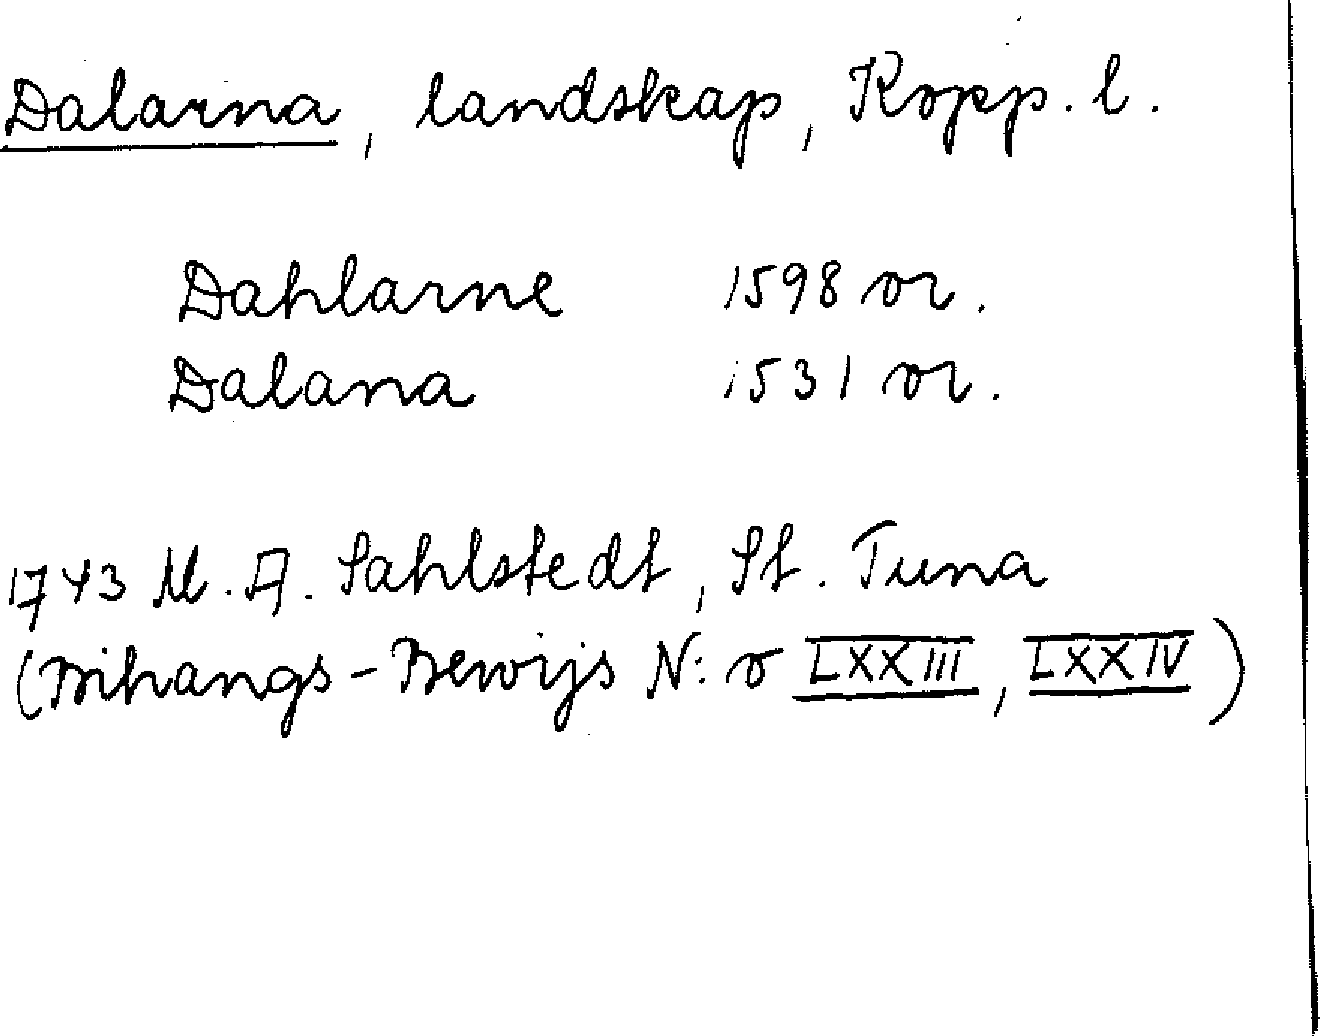 Dalarna, landskap, Kopp. l.
Dahlarne 1598 or.
Dalana 1531 or.
1743 M. A. Sahlstedt, St. Tuna
(Bihangs-Bewijs N:o LXXIII, LXXIV)